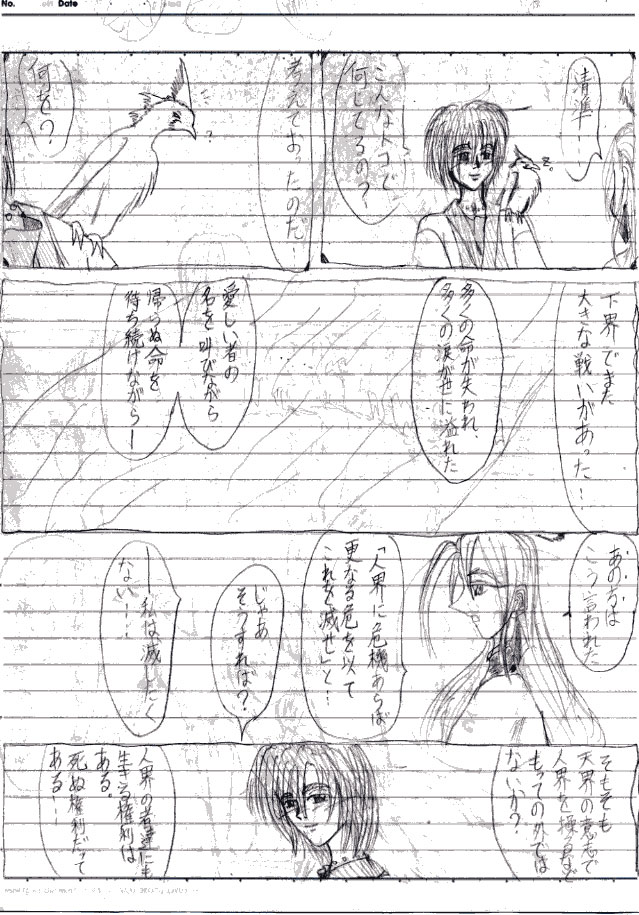 No.
Date
清準…
こんなトコで
何してるの?
考えておったのだ
何を?
下界でまた
大きな戦いがあった…
多くの命が失われ、
多くの涙が世に溢れた
愛しい者の
名を叫びながら
帰らぬ命を
待ち続けながら—
あの方は
こう言われた
「人界に危機あらば
更なる危を以て
これを滅せ」と…
じゃあ
そうすれば?
—私は滅したく
ない…
そもそも
天界の意志で
人界を操るなど
もっての外では
ないか?
人界の者達にも
生きる権利は
ある。
死ぬ権利だって
ある…